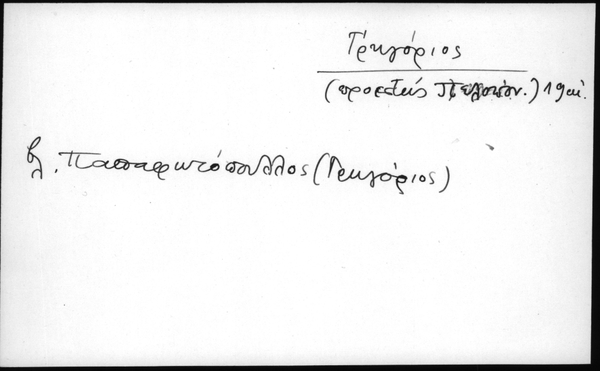 Γρηγόριος
(προεστώς Πελοπόν.) 19 αι.
βλ. Παπαφωτόπουλλος (Γρηγόριος)